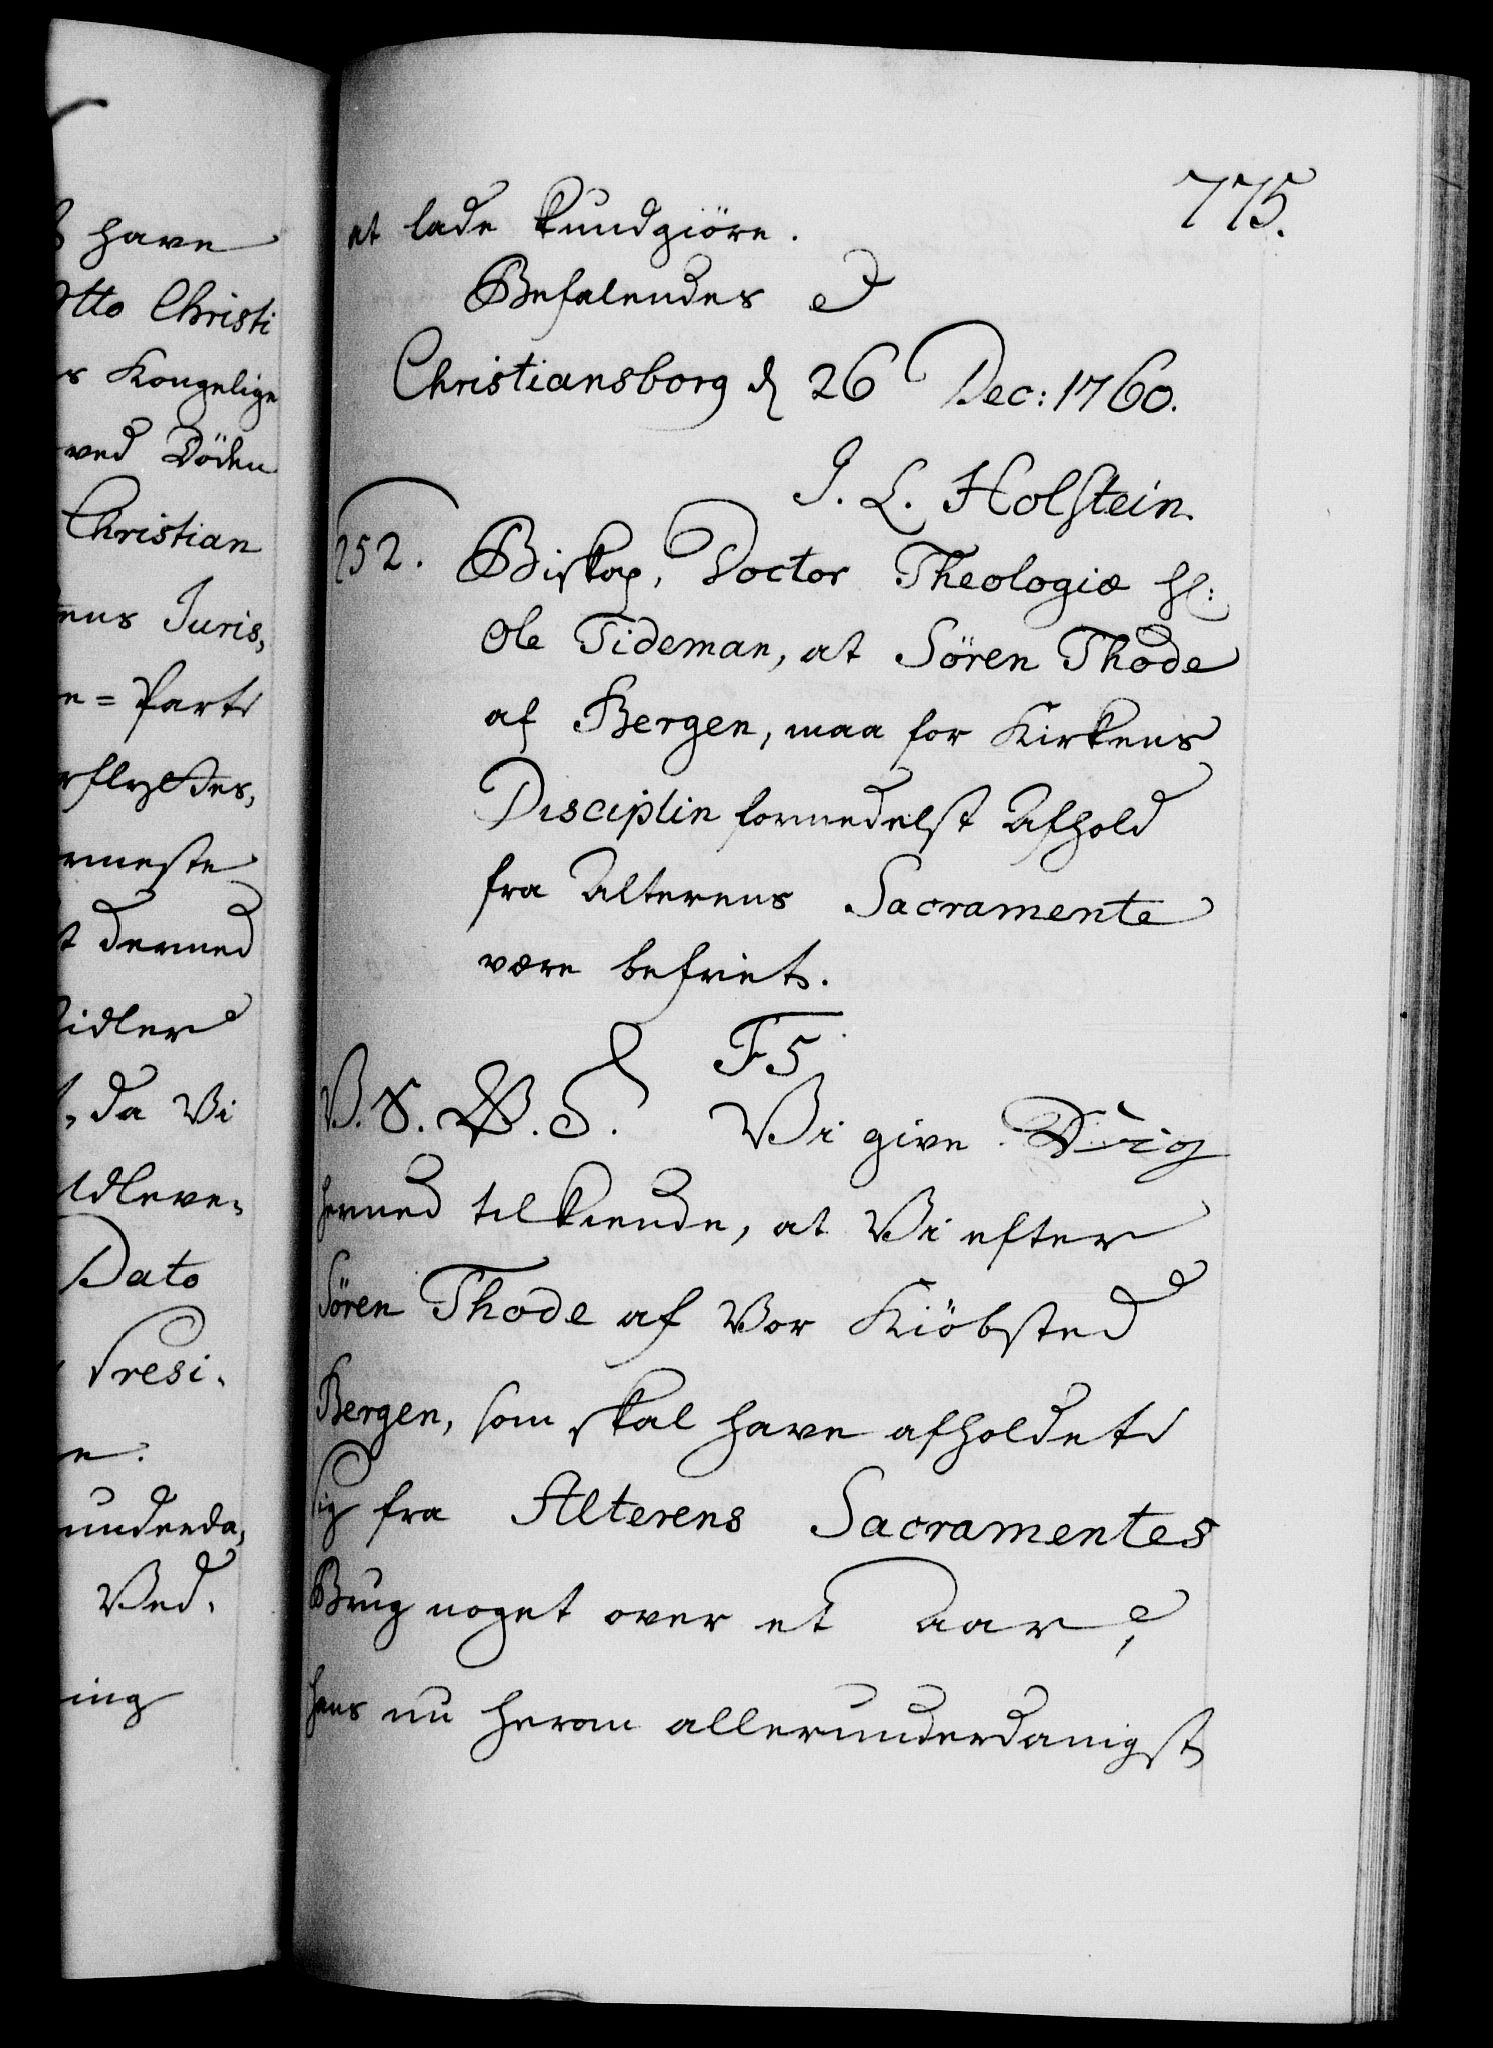 775.
et lade kundgiöre.
Befalendes
Christiansborg d 26 Dec: 1760.
J. L. Holstein.
252. Biskop, Doctor Theologiæ Hr:
Ole Tideman, at Sören Thode
af Bergen, maa for Kirkens
Disciplin formedelst Afhold
fra Alterens Sacramente
være befriet.
F5
V. S. G. T. Vi give Dig
hermed tilkiende, at Vi efter
Sören Thode af Vor Kiöbsted
Bergen, som skal have afholdet
sig fra Alterens Sacramentes
Brug noget over et Aar,
hans nu herom allerunderdanigst
have
Otto Christi
s Kongelige
ved Döden
Christian
tens Juris,
e = Part
rflyttes,
rmeste
t dermed
idler
, da Vi
Udleve,
Dato
Presi,
e.
underda,
Ved,
ing